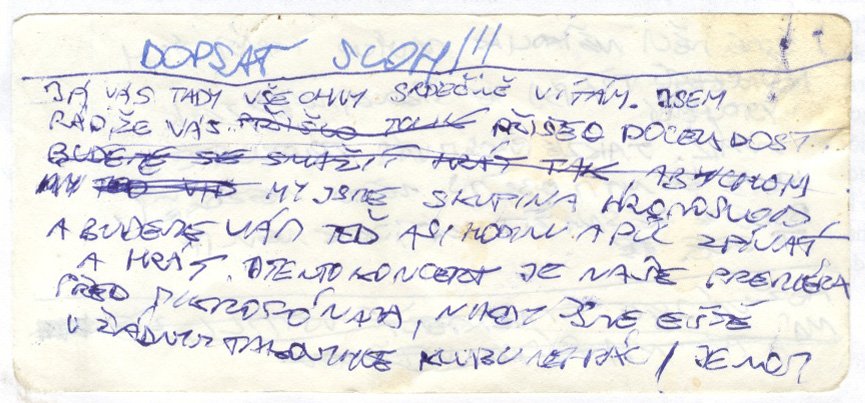 DOPSAT SLOH!!!
JÁ VÁS TADY VŠECHNY SRDEČNĚ VÍTÁM. JSEM
RÁD, ŽE VÁS PŘIŠLO TOLIK PŘIŠLO DOCELA DOST.
BUDEME SE SNAŽIT HRÁT TAK ABYCHOM
MY JSME SKUPINA HROMOSVOD
A BUDEME VÁM TEĎ ASI HODINU A PŮL ZPÍVAT
A HRÁT. TENTO KONCERT JE NAŠE PREMIÉRA
PŘED MIKROFÓNAMA, NIKDY JSME EŠTĚ
V ŽÁDNYM TAKOVYHLE KLUBU